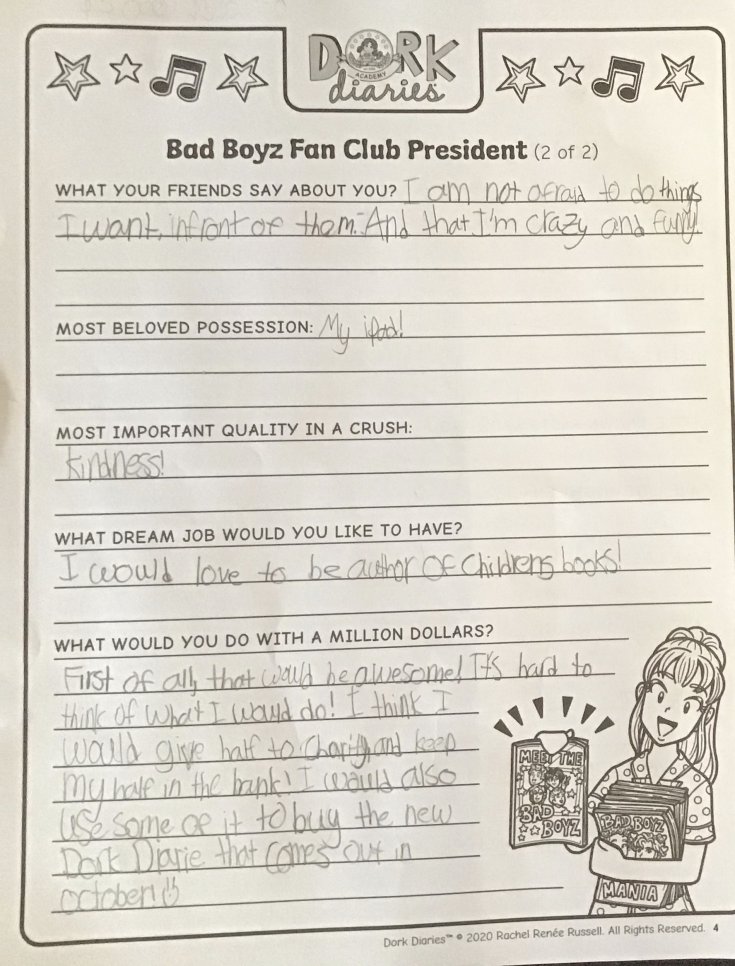 DORK
ACADEMY
diaries
Bad Boyz Fan Club President (2 of 2)
WHAT YOUR FRIENDS SAY ABOUT YOU? I am not afraid to do things
I want, infront of them. And that I'm crazy and funny!
MOST BELOVED POSSESSION: My ipad!
MOST IMPORTANT QUALITY IN A CRUSH:
kindness!
WHAT DREAM JOB WOULD YOU LIKE TO HAVE?
I would love to be author of Childrens books!
WHAT WOULD YOU DO WITH A MILLION DOLLARS?
First of all, that would be awesome! It's hard to
think of what I would do! I think I
would give half to Charity, and keep
My half in the bank! I would also
use some of it to buy the new
Dork Diarie that comes out in
october! ☺
MEET THE
BAD
BOYZ
BAD BOYZ
MANIA
Dork Diaries™ © 2020 Rachel Renée Russell. All Rights Reserved. 4